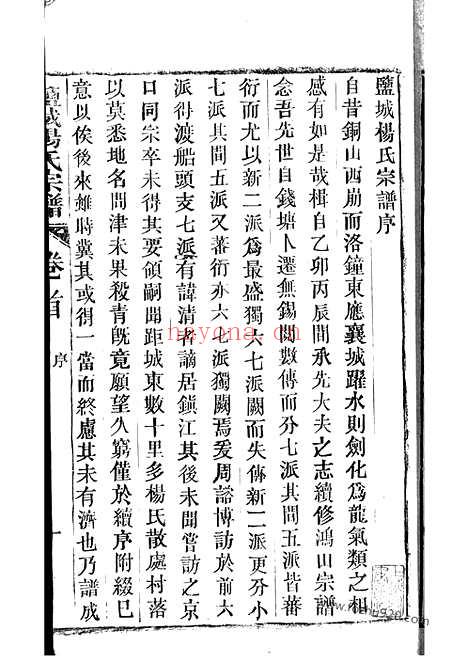 鹽城楊氏宗譜序
自昔銅山西崩而洛鐘東應襄城躍水則劍化為龍氣類之相
感有如是哉楫自乙卯丙辰間承先大夫之志續修鴻山宗譜
念吾先世自錢塘卜遷無錫閱數傳而分七派其間五派皆蕃
衍而尤以新二派為最盛獨六七派闕而失傳新二派更分小
七派其間五派又蕃衍亦六七派獨闕焉爰周諮博訪於前六
派得渡船頭支七派有諱清者謫居鎮江其後未聞嘗訪之京
口同宗卒未得其要領嗣聞距城東數十里多楊氏散處村落
以莫悉地名問津未果殺青既竟願望久窮僅於續序附綴已
意以俟後來雖時冀其或得一當而終慮其未有濟也乃譜成
鹽城楊氏宗譜
卷首
序
一
hayona.cn